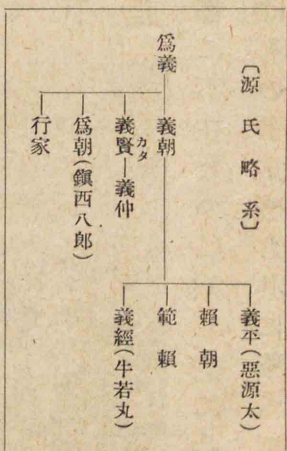 〔源氏略系〕
爲義
義朝
義平(惡源太)
賴朝
範賴
義經(牛若丸)
義賢―義仲
カタ
爲朝(鎭西八郎)
行家